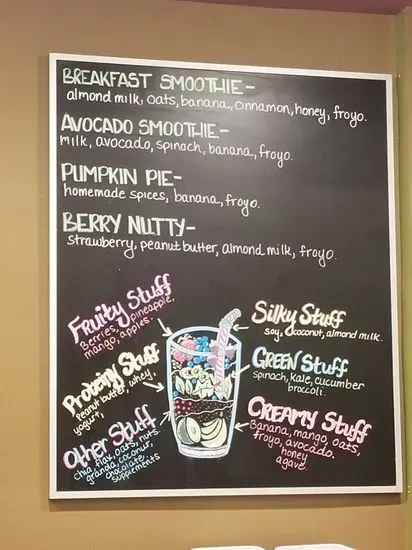 BREAKFAST SMOOTHIE-
almond milk, oats, banana, cinnamon, honey, froyo.
AVOCADO SMOOTHIE-
milk, avocado, spinach, banana, froyo.
PUMPKIN PIE-
homemade spices, banana, froyo.
BERRY NUTTY-
strawberry, peanut butter, almond milk, froyo.
Fruity Stuff
Berries, pineapple,
mango, apples.
Silky Stuff
soy, coconut, almond milk.
Proteiny Stuff
Peanut butter, whey,
yogurt,
GREEN Stuff
spinach, kale, cucumber
broccoli.
Other Stuff
chia, flax, oats, nuts,
granola, coconut,
chocolate
supplements
CREAMY Stuff
Banana, mango, oats,
froyo, avocado.
honey
agave